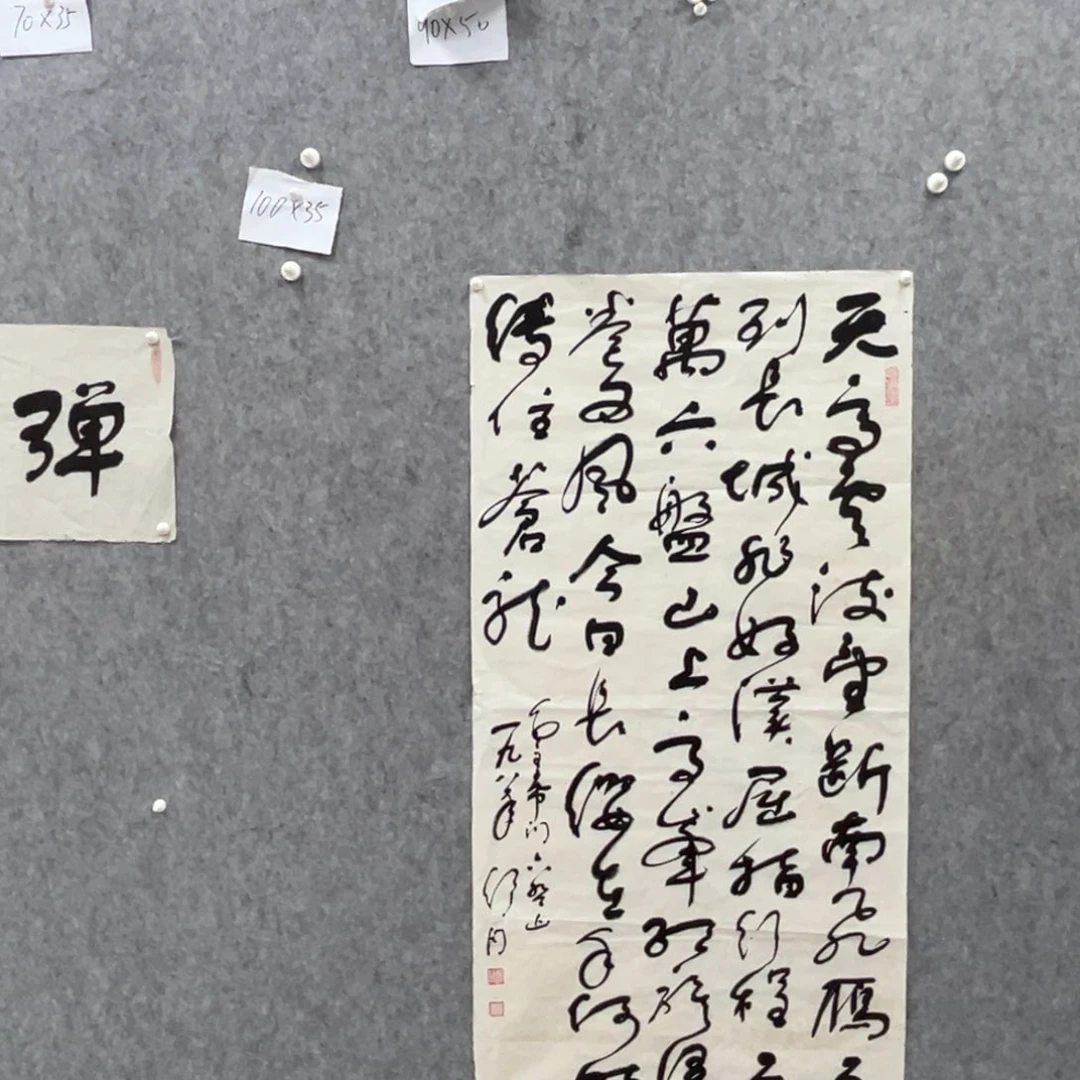 70X35
90X50
100X35
弹
天高雲淡望斷南飛雁不
到長城非好漢屈指行程二
萬六盤山上高峯紅旗漫
卷西風今日長纓在手何時
縛住蒼龍
毛主席詞六盤山